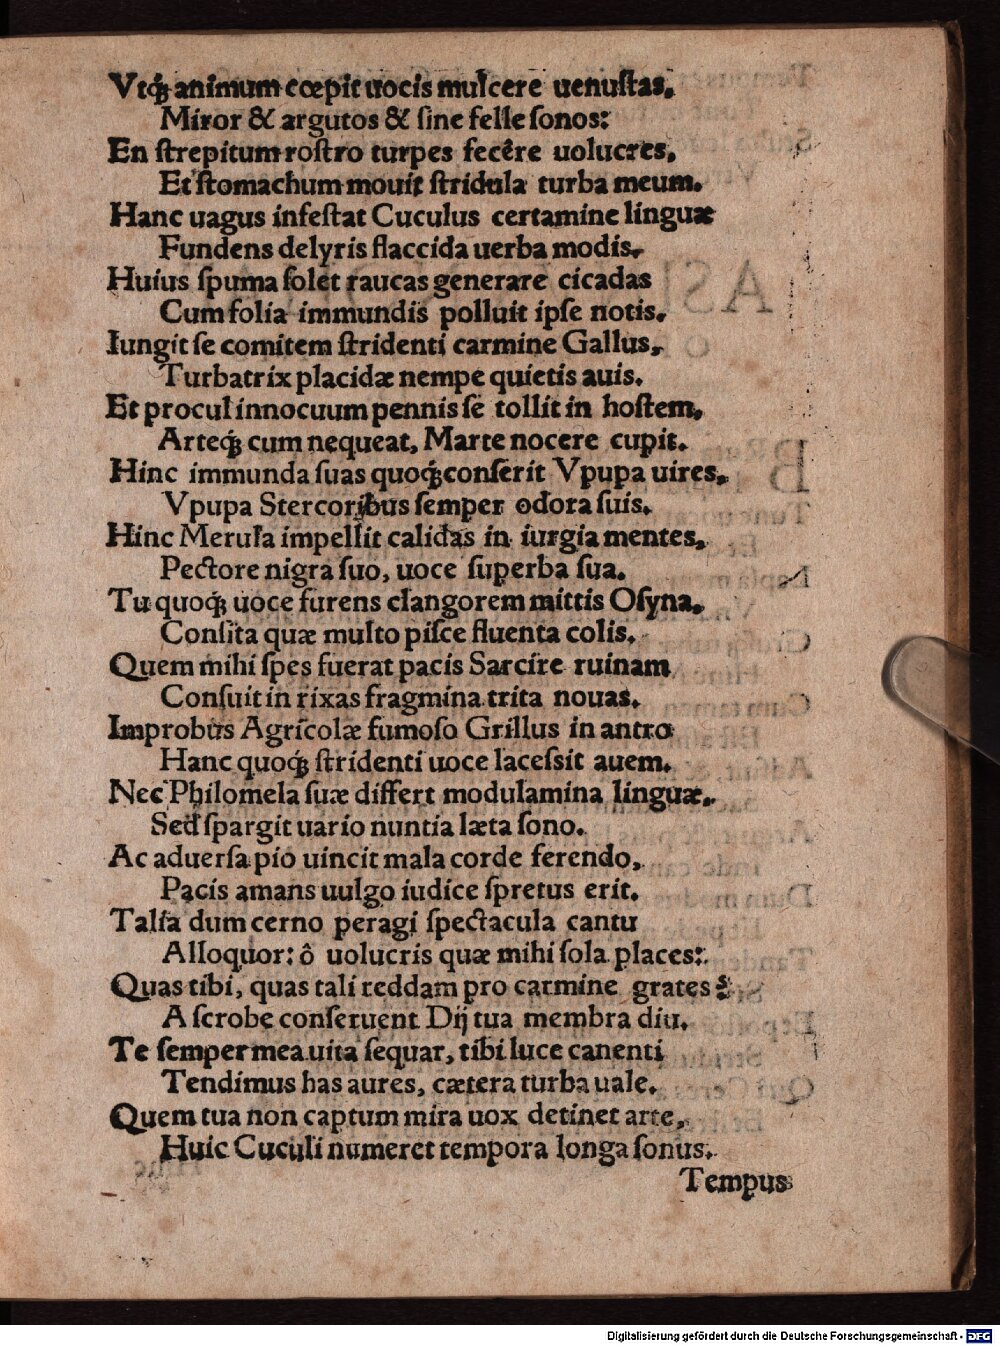 Vtq́ animum cœpit uocis mulcere uenuſtas,
Miror & argutos & ſine felle ſonos:
En ſtrepitum roſtro turpes fecêre uolucres,
Et ſtomachum mouit ſtridula turba meum.
Hanc uagus infeſtat Cuculus certamine linguæ
Fundens delyris flaccida uerba modis.
Huius ſpuma ſolet raucas generare cicadas
Cum folia immundis polluit ipſe notis.
Iungit ſe comitem ſtridenti carmine Gallus,
Turbatrix placidæ nempe quietis auis.
Et procul innocuum pennis ſe tollit in hoſtem,
Arteq́ cum nequeat, Marte nocere cupit.
Hinc immunda ſuas quoq́ conſerit Vpupa uires,
Vpupa Stercoribus ſemper odora ſuis.
Hinc Merula impellit calidas in iurgia mentes,
Pectore nigra ſuo, uoce ſuperba ſua.
Tu quoq́ uoce furens clangorem mittis Oſyna,
Conſita quæ multo piſce fluenta colis.
Quem mihi ſpes fuerat pacis Sarcire ruinam
Conſuit in rixas fragmina trita nouas.
Improbus Agricolæ fumoſo Grillus in antro
Hanc quoq́ ſtridenti uoce laceſsit auem.
Nec Philomela ſuæ differt modulamina linguæ,
Sed ſpargit uario nuntia læta ſono.
Ac aduerſa pio uincit mala corde ferendo,
Pacis amans uulgo iudice ſpretus erit.
Talia dum cerno peragi ſpectacula cantu
Alloquor: ô uolucris quæ mihi ſola places:
Quas tibi, quas tali reddam pro carmine grates?
A ſcrobe conſeruent Dij tua membra diu.
Te ſemper mea uita ſequar, tibi luce canenti
Tendimus has aures, cætera turba uale.
Quem tua non captum mira uox detinet arte,
Huic Cuculi numeret tempora longa ſonus.
Tempus
Digitalisierung gefördert durch die Deutsche Forschungsgemeinschaft - DFG